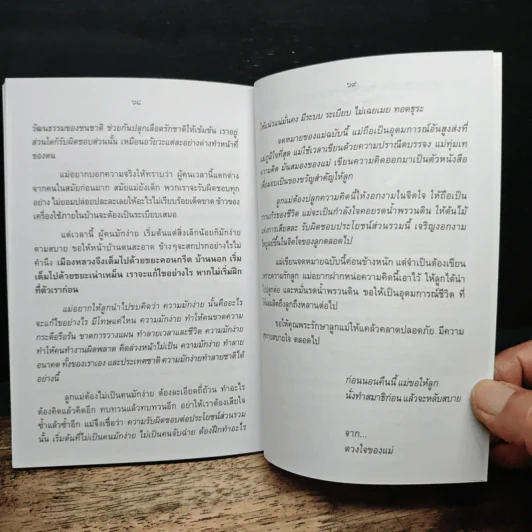 ๖๘
วัฒนธรรมของชนชาติ ช่วยกันปลูกเลือดรักชาติให้เข้มข้น เราอยู่
ส่วนใดก็รับผิดชอบส่วนนั้น เหมือนอวัยวะแต่ละอย่างต่างทำหน้าที่
ของตน
แม่อยากบอกความจริงให้ทราบว่า ผู้คนเวลานี้แตกต่าง
จากคนในสมัยก่อนมาก สมัยแม่ยังเด็ก พวกเราจะรับผิดชอบทุก
อย่าง ไม่ยอมปล่อยปละละเลยให้อะไรไม่เรียบร้อยเด็ดขาด ข้าวของ
เครื่องใช้ภายในบ้านจะต้องเป็นระเบียบเสมอ
แต่เวลานี้ ผู้คนมักง่าย เริ่มต้นแต่สิ่งเล็กน้อยก็มักง่าย
ตามสบาย ขอให้หน้าบ้านตนสะอาด ข้างๆจะสกปรกอย่างไรไม่
คำนึง เมืองหลวงจึงเต็มไปด้วยขยะคอนกรีต บ้านนอก เริ่ม
เต็มไปด้วยขยะเน่าเหม็น เราจะแก้ไขอย่างไร หากไม่เริ่มฝึก
ที่ตัวเราก่อน
แม่อยากให้ลูกนำไปขบคิดว่า ความมักง่าย นั้นคืออะไร
จะแก้ไขอย่างไร มีโทษแค่ไหน ความมักง่าย ทำให้คนขาดความ
กระตือรือร้น ขาดการวางแผน ทำลายเวลาและชีวิต ความมักง่าย
ทำให้คนทำงานผิดพลาด คิดล่วงหน้าไม่เป็น ความมักง่าย ทำลาย
อนาคต ทั้งของเราเอง และประเทศชาติ ความมักง่ายทำลายชาติได้
อย่างนี้
ลูกแม่ต้องไม่เป็นคนมักง่าย ต้องละเอียดถี่ถ้วน ทำอะไร
ต้องคิดแล้วคิดอีก ทบทวนแล้วทบทวนอีก อย่าให้เราต้องเสียใจ
ซ้ำแล้วซ้ำอีก แม่จึงเชื่อว่า ความรับผิดชอบต่อประโยชน์ส่วนรวม
นั้น เริ่มต้นที่ไม่เป็นคนมักง่าย ไม่เป็นคนจับฉ่าย ต้องฝึกทำอะไร
๖๙
ให้แน่วแน่มั่นคง มีระบบ ระเบียบ ไม่เฉยเมย ทอดธุระ
จดหมายของแม่ฉบับนี้ แม่ถือเป็นอุดมการณ์อันสูงส่งที่
แม่ภูมิใจที่สุด แม่ใช้เวลาเขียนด้วยความปราณีตบรรจง แม่ทุ่มเท
ความคิด มันสมองของแม่ เขียนความคิดออกมาเป็นตัวหนังสือ
เพื่อมอบเป็นของขวัญสำคัญให้ลูก
ลูกแม่ต้องปลูกความคิดนี้ให้งอกงามในจิตใจ ให้ถือเป็น
ของชีวิต แม่จะเป็นกำลังใจคอยรดน้ำพรวนดิน ให้ต้นไม้
การเสียสละ รับผิดชอบประโยชน์ส่วนรวมนี้ เจริญงอกงาม
ขึ้นในจิตใจของลูกตลอดไป
แม่เขียนจดหมายฉบับนี้ค่อนข้างหนัก แต่จำเป็นต้องเขียน
เพราะความรักลูก แม่อยากฝากหน่อความคิดนี้เอาไว้ ให้ลูกได้นำ
ไปปลูกต่อ และหมั่นรดน้ำพรวนดิน ขอให้เป็นอุดมการณ์ชีวิต ที่
ถึงลูกถึงหลานต่อไป
ขอให้คุณพระรักษาลูกแม่ให้แคล้วคลาดปลอดภัย มีความ
สุขความสบายใจ ตลอดไป
ก่อนนอนคืนนี้ แม่ขอให้ลูก
นั่งทำสมาธิก่อน แล้วจะหลับสบาย
จาก...
ดวงใจของแม่